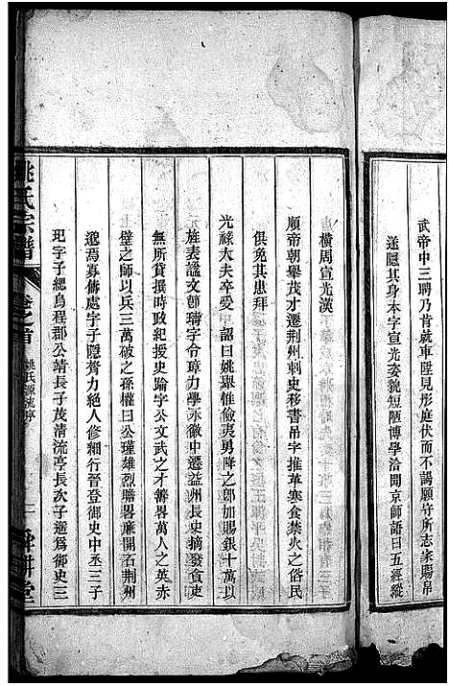 武帝中三聘乃肯就車陛見彤庭伏而不謁願守所志家賜帛
遂隱其身本字宣光姿貌短陋博學洽聞京師語曰五經縱
橫周宣光漢
順帝朝舉茂才遷荆州刺史移書吊字推革寒食禁火之俗民
俱免其患拜
光祿大夫卒受 詔曰姚璆惟儉夷男降之郎加賜銀十萬以
旌表謚文節璹字令璋力學永徽中遷益州長史摘發貪吏
無所貸撰時政紀援史踰字公文武之才籌畧萬人之英赤
壁之師以兵三萬破之孫權曰公瑾雄烈膽畧廉開右荆州
邈焉寡儔處字子隱膂力絕人修細行晉登御史中丞三子
玘字子總烏程郡公靖長子茂清流亭長次子遜爲御史三
姚氏宗譜 卷之首 姚氏源流序 二 舜耕堂